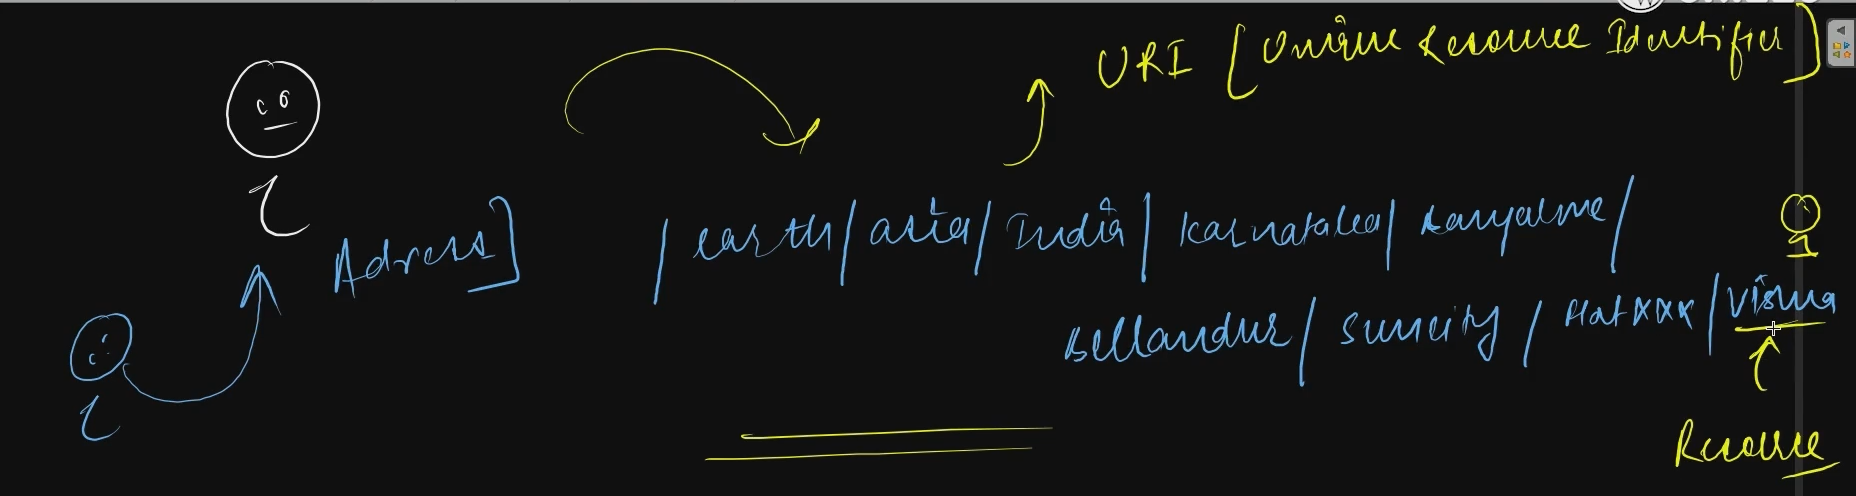 URI [Unique Resource Identifier]
Adress] /earth/asia/India/Karnataka/
Bellandur/Suncity/Flatxxx/Visma
Resource